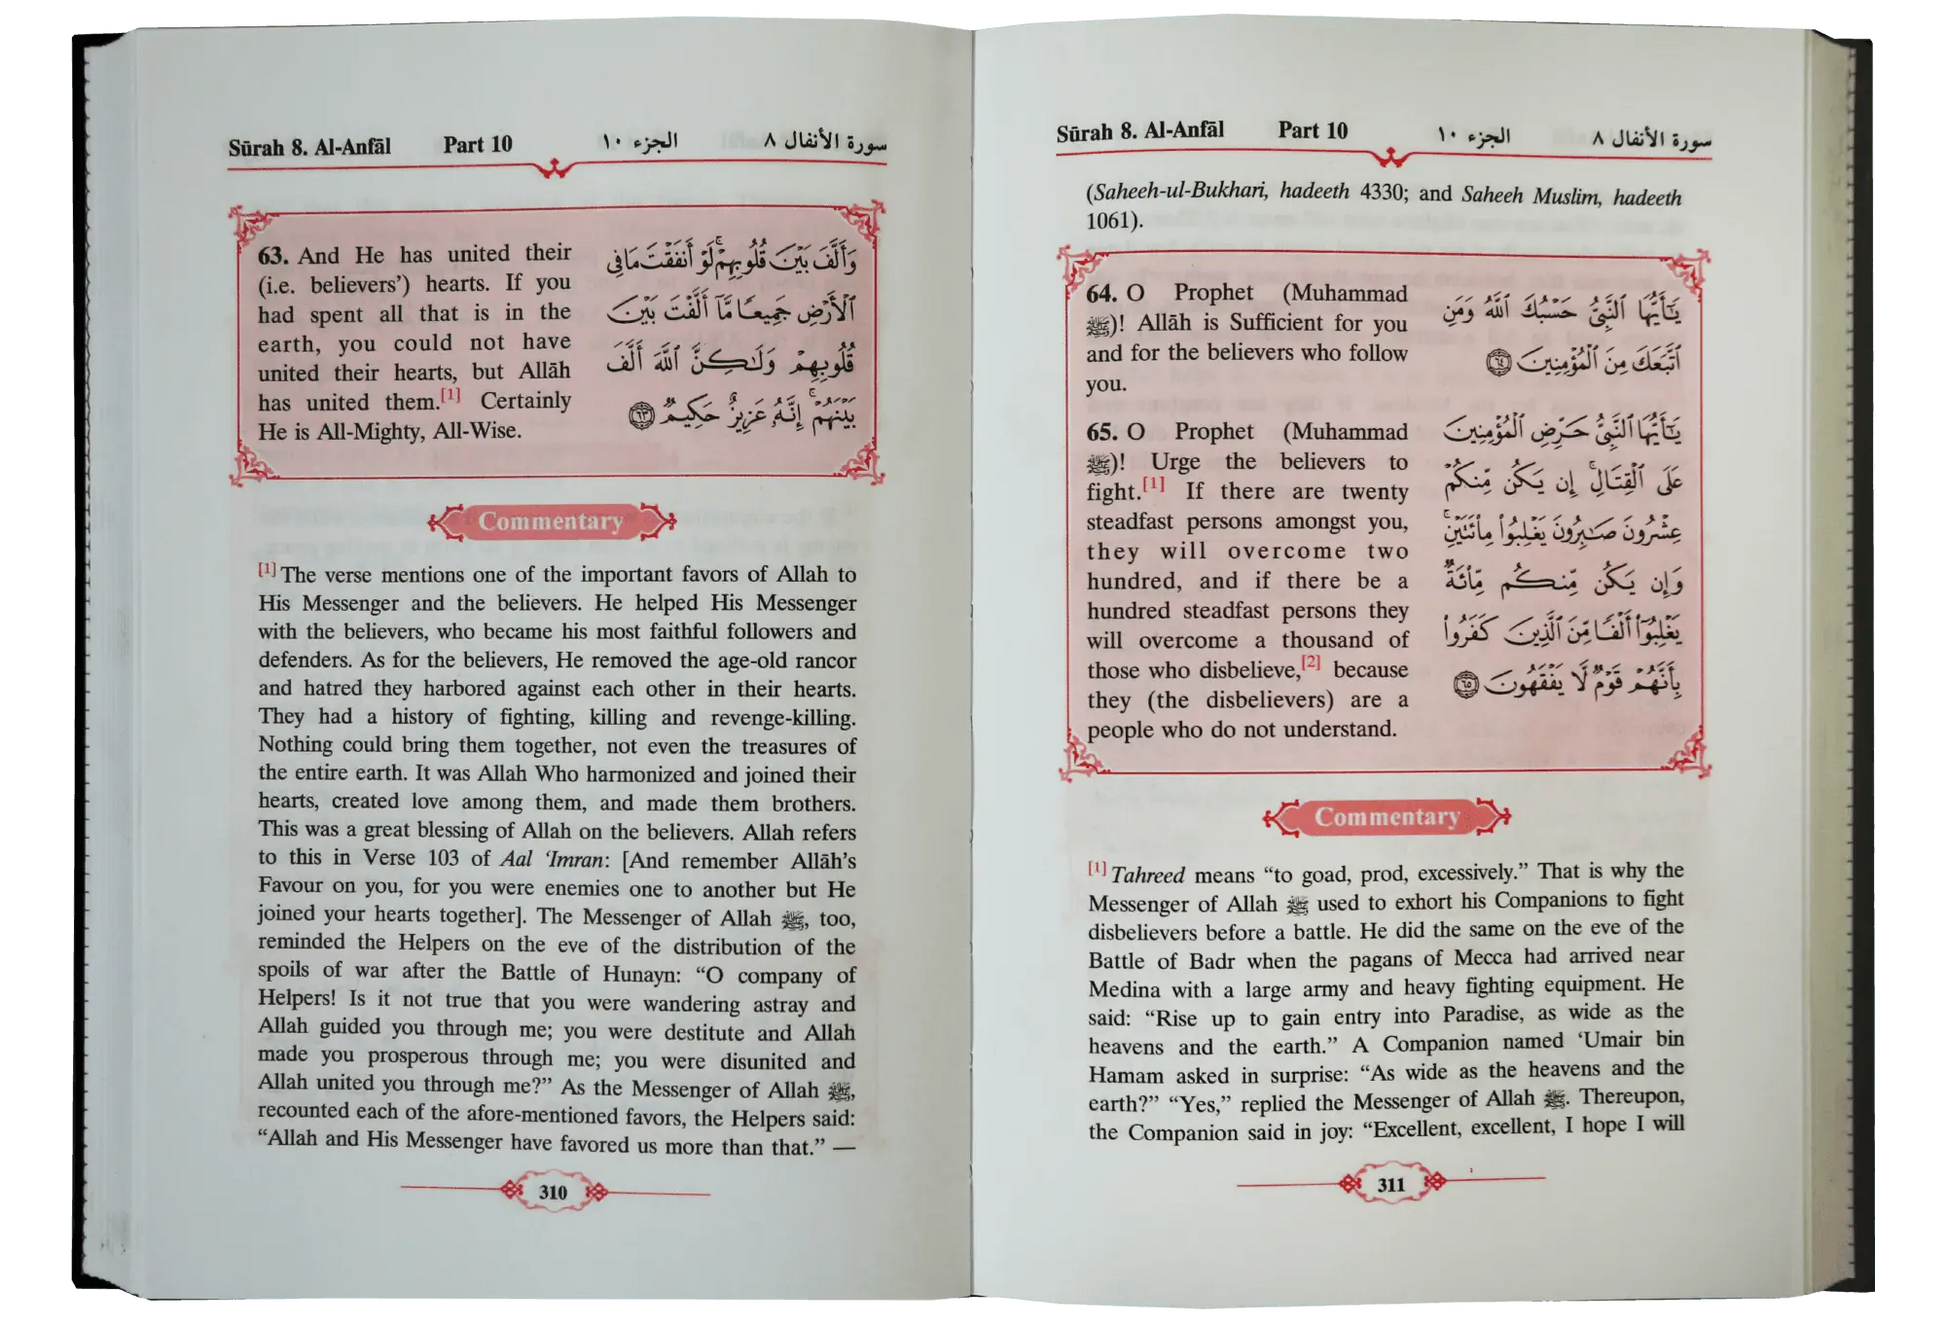 Sūrah 8. Al-Anfāl Part 10 الجزء ١٠ سورة الأنفال ٨
63. And He has united their
(i.e. believers’) hearts. If you
had spent all that is in the
earth, you could not have
united their hearts, but Allāh
has united them.[1] Certainly
He is All-Mighty, All-Wise.
وَأَلَّفَ بَيْنَ قُلُوبِهِمْ ۚ لَوْ أَنفَقْتَ مَا فِى
ٱلْأَرْضِ جَمِيعًا مَّآ أَلَّفْتَ بَيْنَ
قُلُوبِهِمْ وَلَـٰكِنَّ ٱللَّهَ أَلَّفَ
بَيْنَهُمْ ۚ إِنَّهُۥ عَزِيزٌ حَكِيمٌ ٦٣
Commentary
[1] The verse mentions one of the important favors of Allah to
His Messenger and the believers. He helped His Messenger
with the believers, who became his most faithful followers and
defenders. As for the believers, He removed the age-old rancor
and hatred they harbored against each other in their hearts.
They had a history of fighting, killing and revenge-killing.
Nothing could bring them together, not even the treasures of
the entire earth. It was Allah Who harmonized and joined their
hearts, created love among them, and made them brothers.
This was a great blessing of Allah on the believers. Allah refers
to this in Verse 103 of Aal ‘Imran: [And remember Allāh’s
Favour on you, for you were enemies one to another but He
joined your hearts together]. The Messenger of Allah ﷺ, too,
reminded the Helpers on the eve of the distribution of the
spoils of war after the Battle of Hunayn: “O company of
Helpers! Is it not true that you were wandering astray and
Allah guided you through me; you were destitute and Allah
made you prosperous through me; you were disunited and
Allah united you through me?” As the Messenger of Allah ﷺ,
recounted each of the afore-mentioned favors, the Helpers said:
“Allah and His Messenger have favored us more than that.” —
310
Sūrah 8. Al-Anfāl Part 10 الجزء ١٠ سورة الأنفال ٨
(Saheeh-ul-Bukhari, hadeeth 4330; and Saheeh Muslim, hadeeth
1061).
64. O Prophet (Muhammad
ﷺ)! Allāh is Sufficient for you
and for the believers who follow
you.
يَـٰٓأَيُّهَا ٱلنَّبِىُّ حَسْبُكَ ٱللَّهُ وَمَنِ
ٱتَّبَعَكَ مِنَ ٱلْمُؤْمِنِينَ ٦٤
65. O Prophet (Muhammad
ﷺ)! Urge the believers to
fight.[1] If there are twenty
steadfast persons amongst you,
they will overcome two
hundred, and if there be a
hundred steadfast persons they
will overcome a thousand of
those who disbelieve,[2] because
they (the disbelievers) are a
people who do not understand.
يَـٰٓأَيُّهَا ٱلنَّبِىُّ حَرِّضِ ٱلْمُؤْمِنِينَ
عَلَى ٱلْقِتَالِ ۚ إِن يَكُن مِّنكُمْ
عِشْرُونَ صَـٰبِرُونَ يَغْلِبُوا۟ مِا۟ئَتَيْنِ ۚ
وَإِن يَكُن مِّنكُم مِّا۟ئَةٌ
يَغْلِبُوٓا۟ أَلْفًا مِّنَ ٱلَّذِينَ كَفَرُوا۟
بِأَنَّهُمْ قَوْمٌ لَّا يَفْقَهُونَ ٦٥
Commentary
[1] Tahreed means “to goad, prod, excessively.” That is why the
Messenger of Allah ﷺ used to exhort his Companions to fight
disbelievers before a battle. He did the same on the eve of the
Battle of Badr when the pagans of Mecca had arrived near
Medina with a large army and heavy fighting equipment. He
said: “Rise up to gain entry into Paradise, as wide as the
heavens and the earth.” A Companion named ‘Umair bin
Hamam asked in surprise: “As wide as the heavens and the
earth?” “Yes,” replied the Messenger of Allah ﷺ. Thereupon,
the Companion said in joy: “Excellent, excellent, I hope I will
311